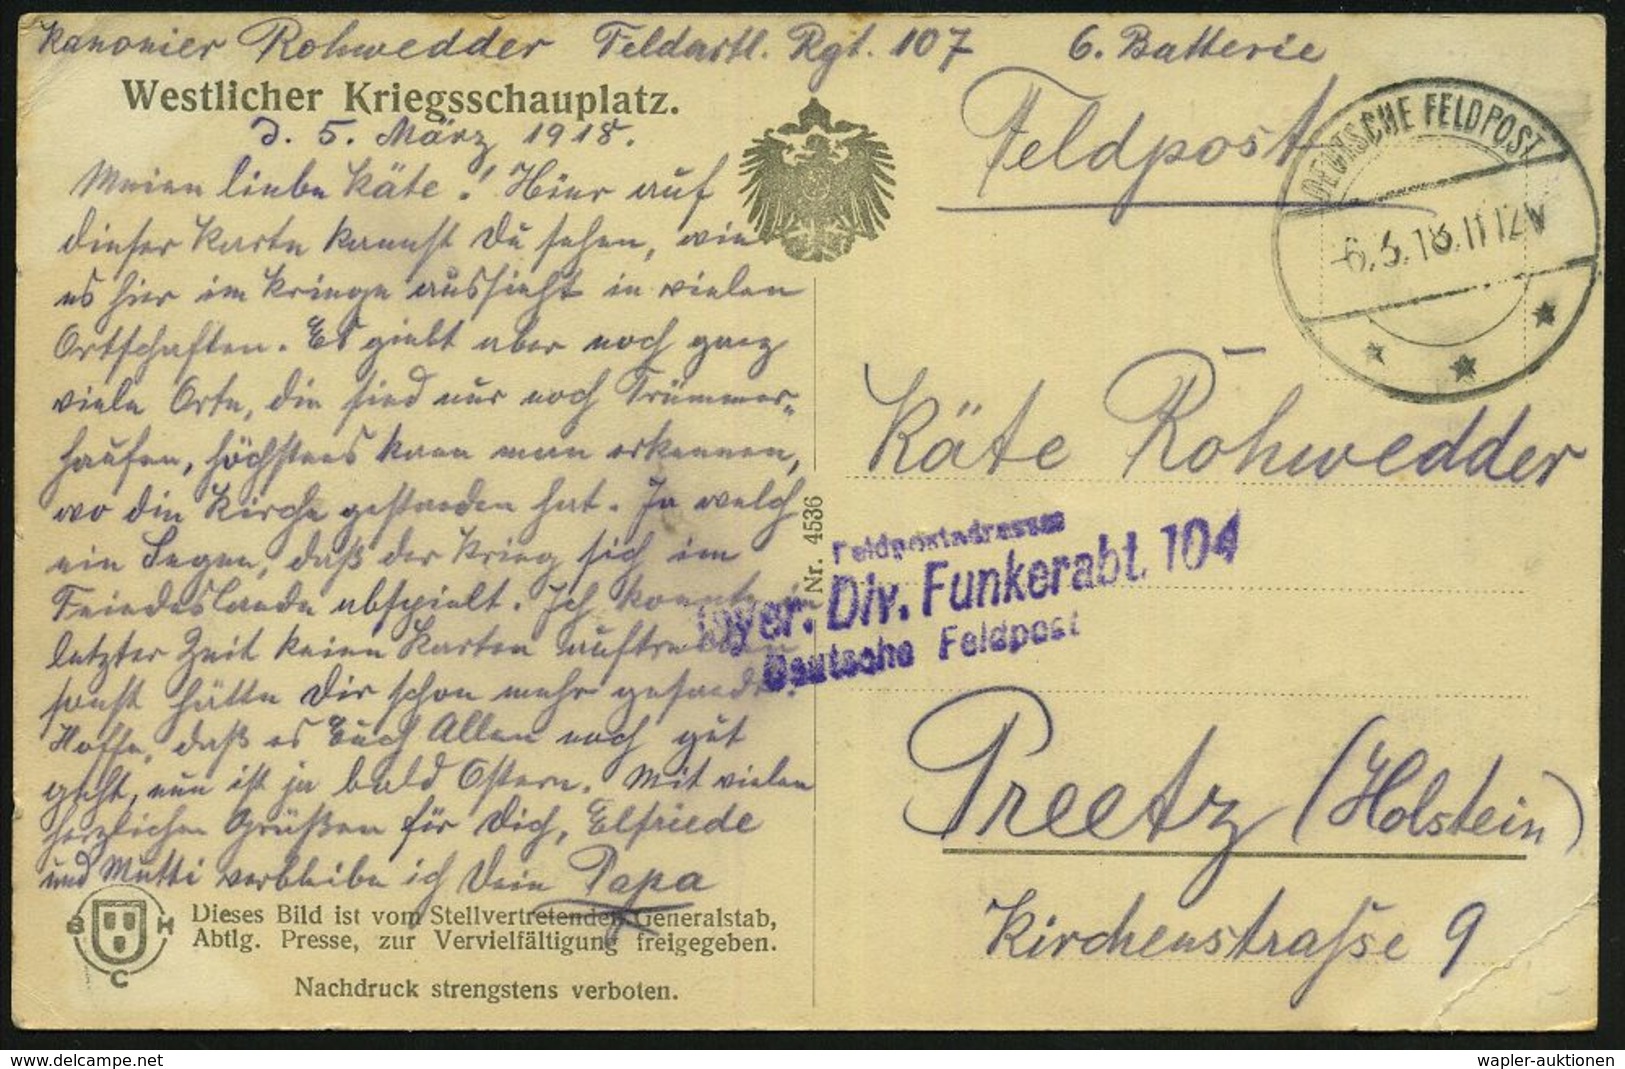 Kanonier Rohwedder Feldartl. Rgt. 107 6. Batterie
Westlicher Kriegsschauplatz.
d. 5. März 1918.
Meine liebe Käte! Hier auf
dieser Karte kannst Du sehen, wie
es hier im Kriege aussieht in vielen
Ortschaften. Es giebt aber noch ganz
viele Orte, die sind nur noch Trümmer-
haufen, höchstens kann man erkennen,
wo die Kirche gestanden hat. Ja welch
ein Segen, daß der Krieg sich im
Feindeslande abspielt. Ich konnte in
letzter Zeit keine Karten auftreiben
sonst hätte Dir schon mehr gesandt.
Hoffe, daß es Euch Allen noch gut
geht, nun ist ja bald Ostern. Mit vielen
herzlichen Grüßen für Dich, Elfriede
und Mutti verbleibe ich Dein Papa
B H C
Dieses Bild ist vom Stellvertretenden Generalstab,
Abtlg. Presse, zur Vervielfältigung freigegeben.
Nachdruck strengstens verboten.
Nr. 4536
Feldpost
DEUTSCHE FELDPOST
-6.3.18.11-12V
Käte Rohwedder
Feldpostadresse
Bayer. Div. Funkerabt. 104
Deutsche Feldpost
Preetz (Holstein)
Kirchenstrasse 9
wapler-auktionen